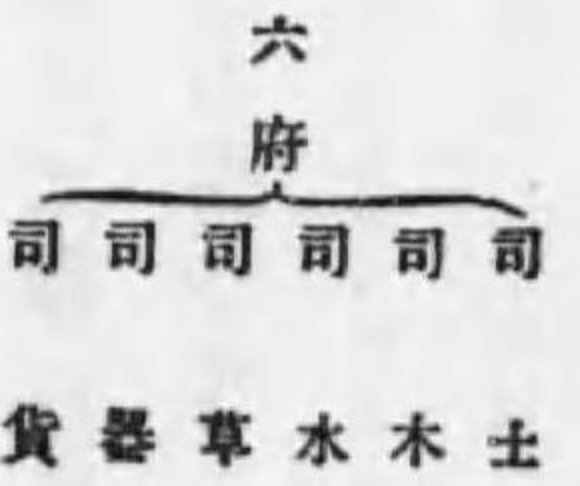 六府
司土
司木
司水
司草
司器
司貨